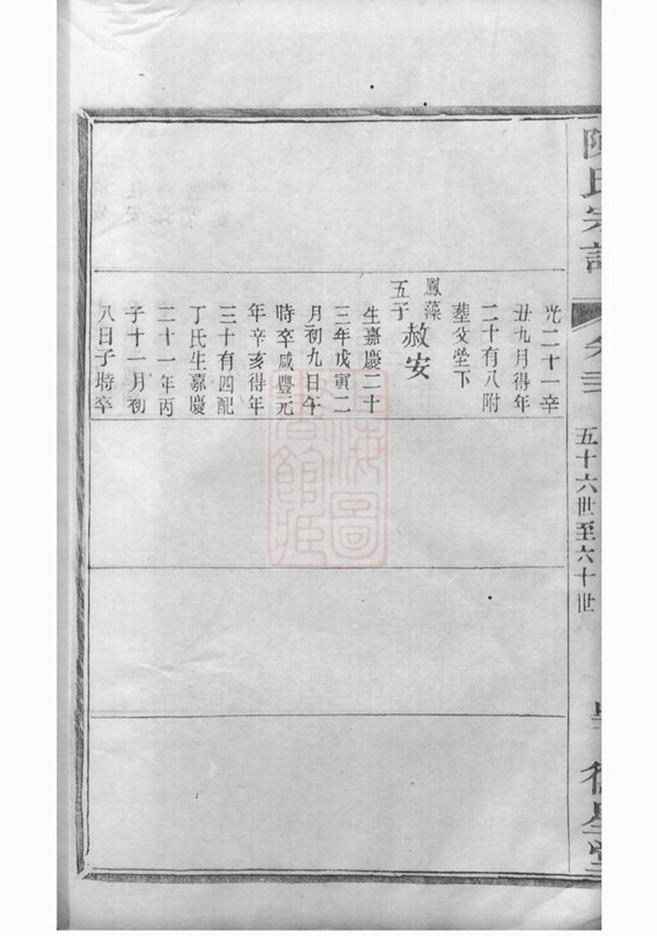 陳氏宗譜
五十六世至六十世
光二十一辛
丑九月得年
二十有八附
塟父塋下
鳳藻
五子 赦安
生嘉慶二十
三年戊寅二
月初九日午
時卒咸豐元
年辛亥得年
三十有四配
丁氏生嘉慶
二十一年丙
子十一月初
八日子時卒
上海圖
書館藏